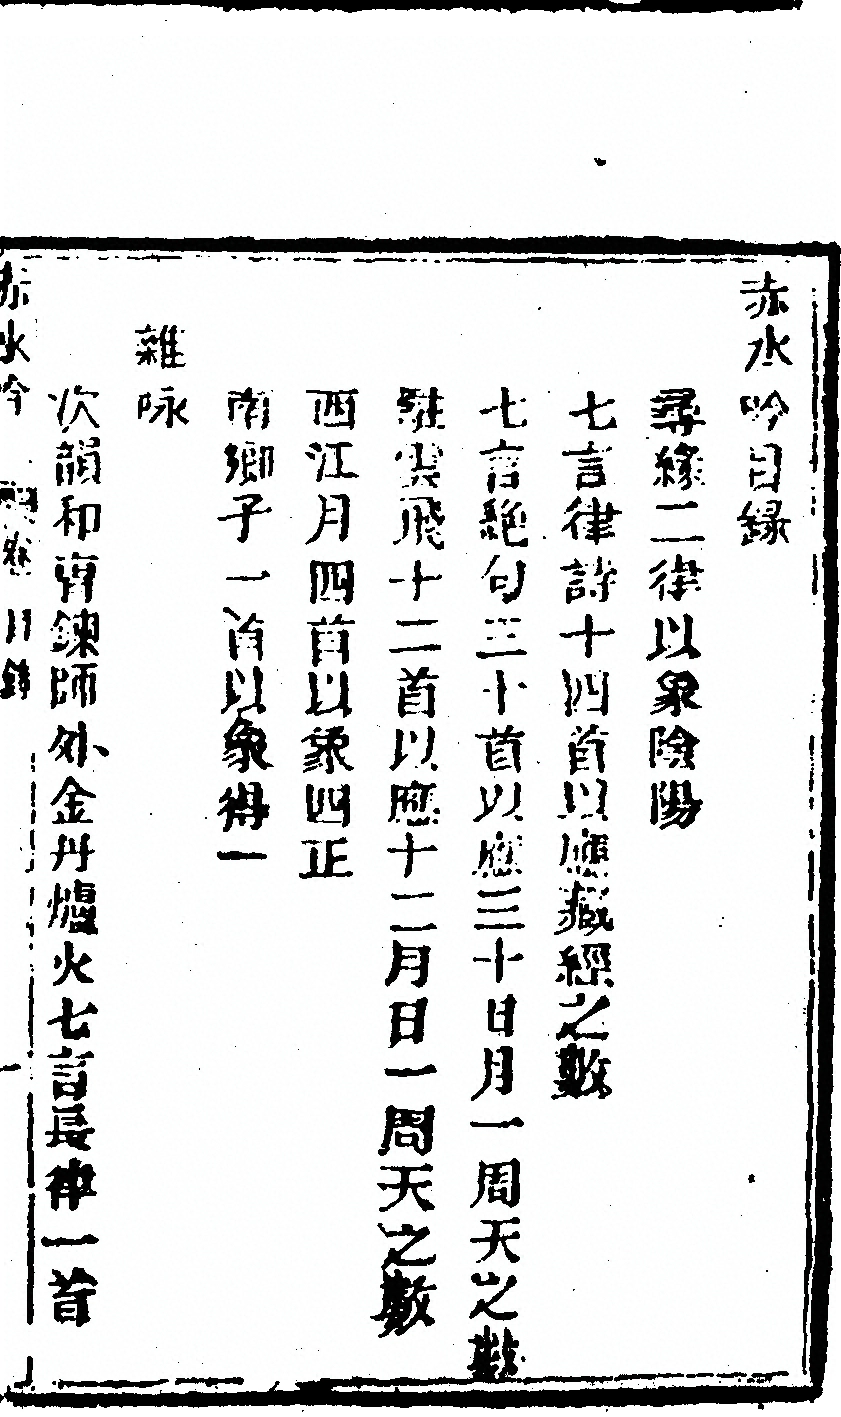 赤水吟目錄
尋緣二律以象陰陽
七言律詩十四首以應藏經之數
七言絶句三十首以應三十日月一周天之數
駐雲飛十二首以應十二月日一周天之數
西江月四首以象四正
南鄉子一首以象得一
雜咏
次韻和曹鍊師外金丹爐火七言長律一首
赤水吟 卷 目錄 一